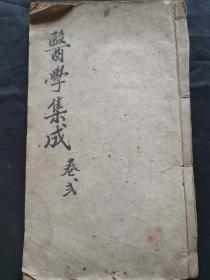 醫學集成
卷弍